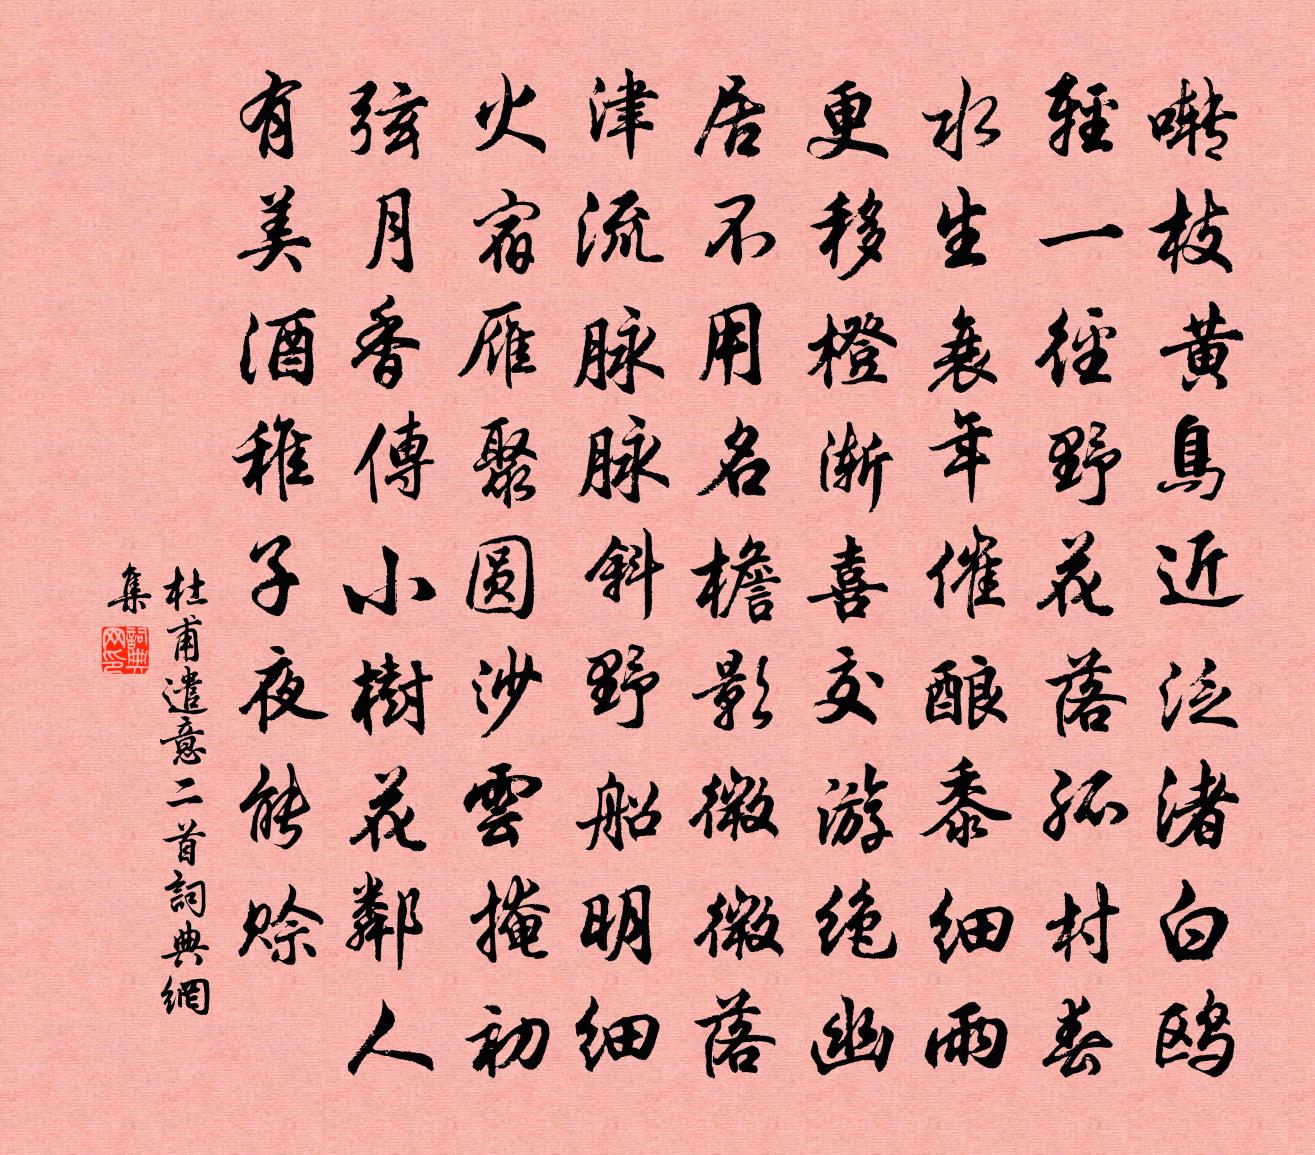 啭枝黄鳥近泛渚白鸥
輕一徑野花落孤村春
水生衰年催酿黍細雨
更移橙渐喜交游绝幽
居不用名檐影微微落
津流脉脉斜野船明細
火宿雁聚圆沙雲掩初
弦月香傳小樹花鄰人
有美酒稚子夜能赊
杜甫遣意二首詞典網
集
詞典
网印